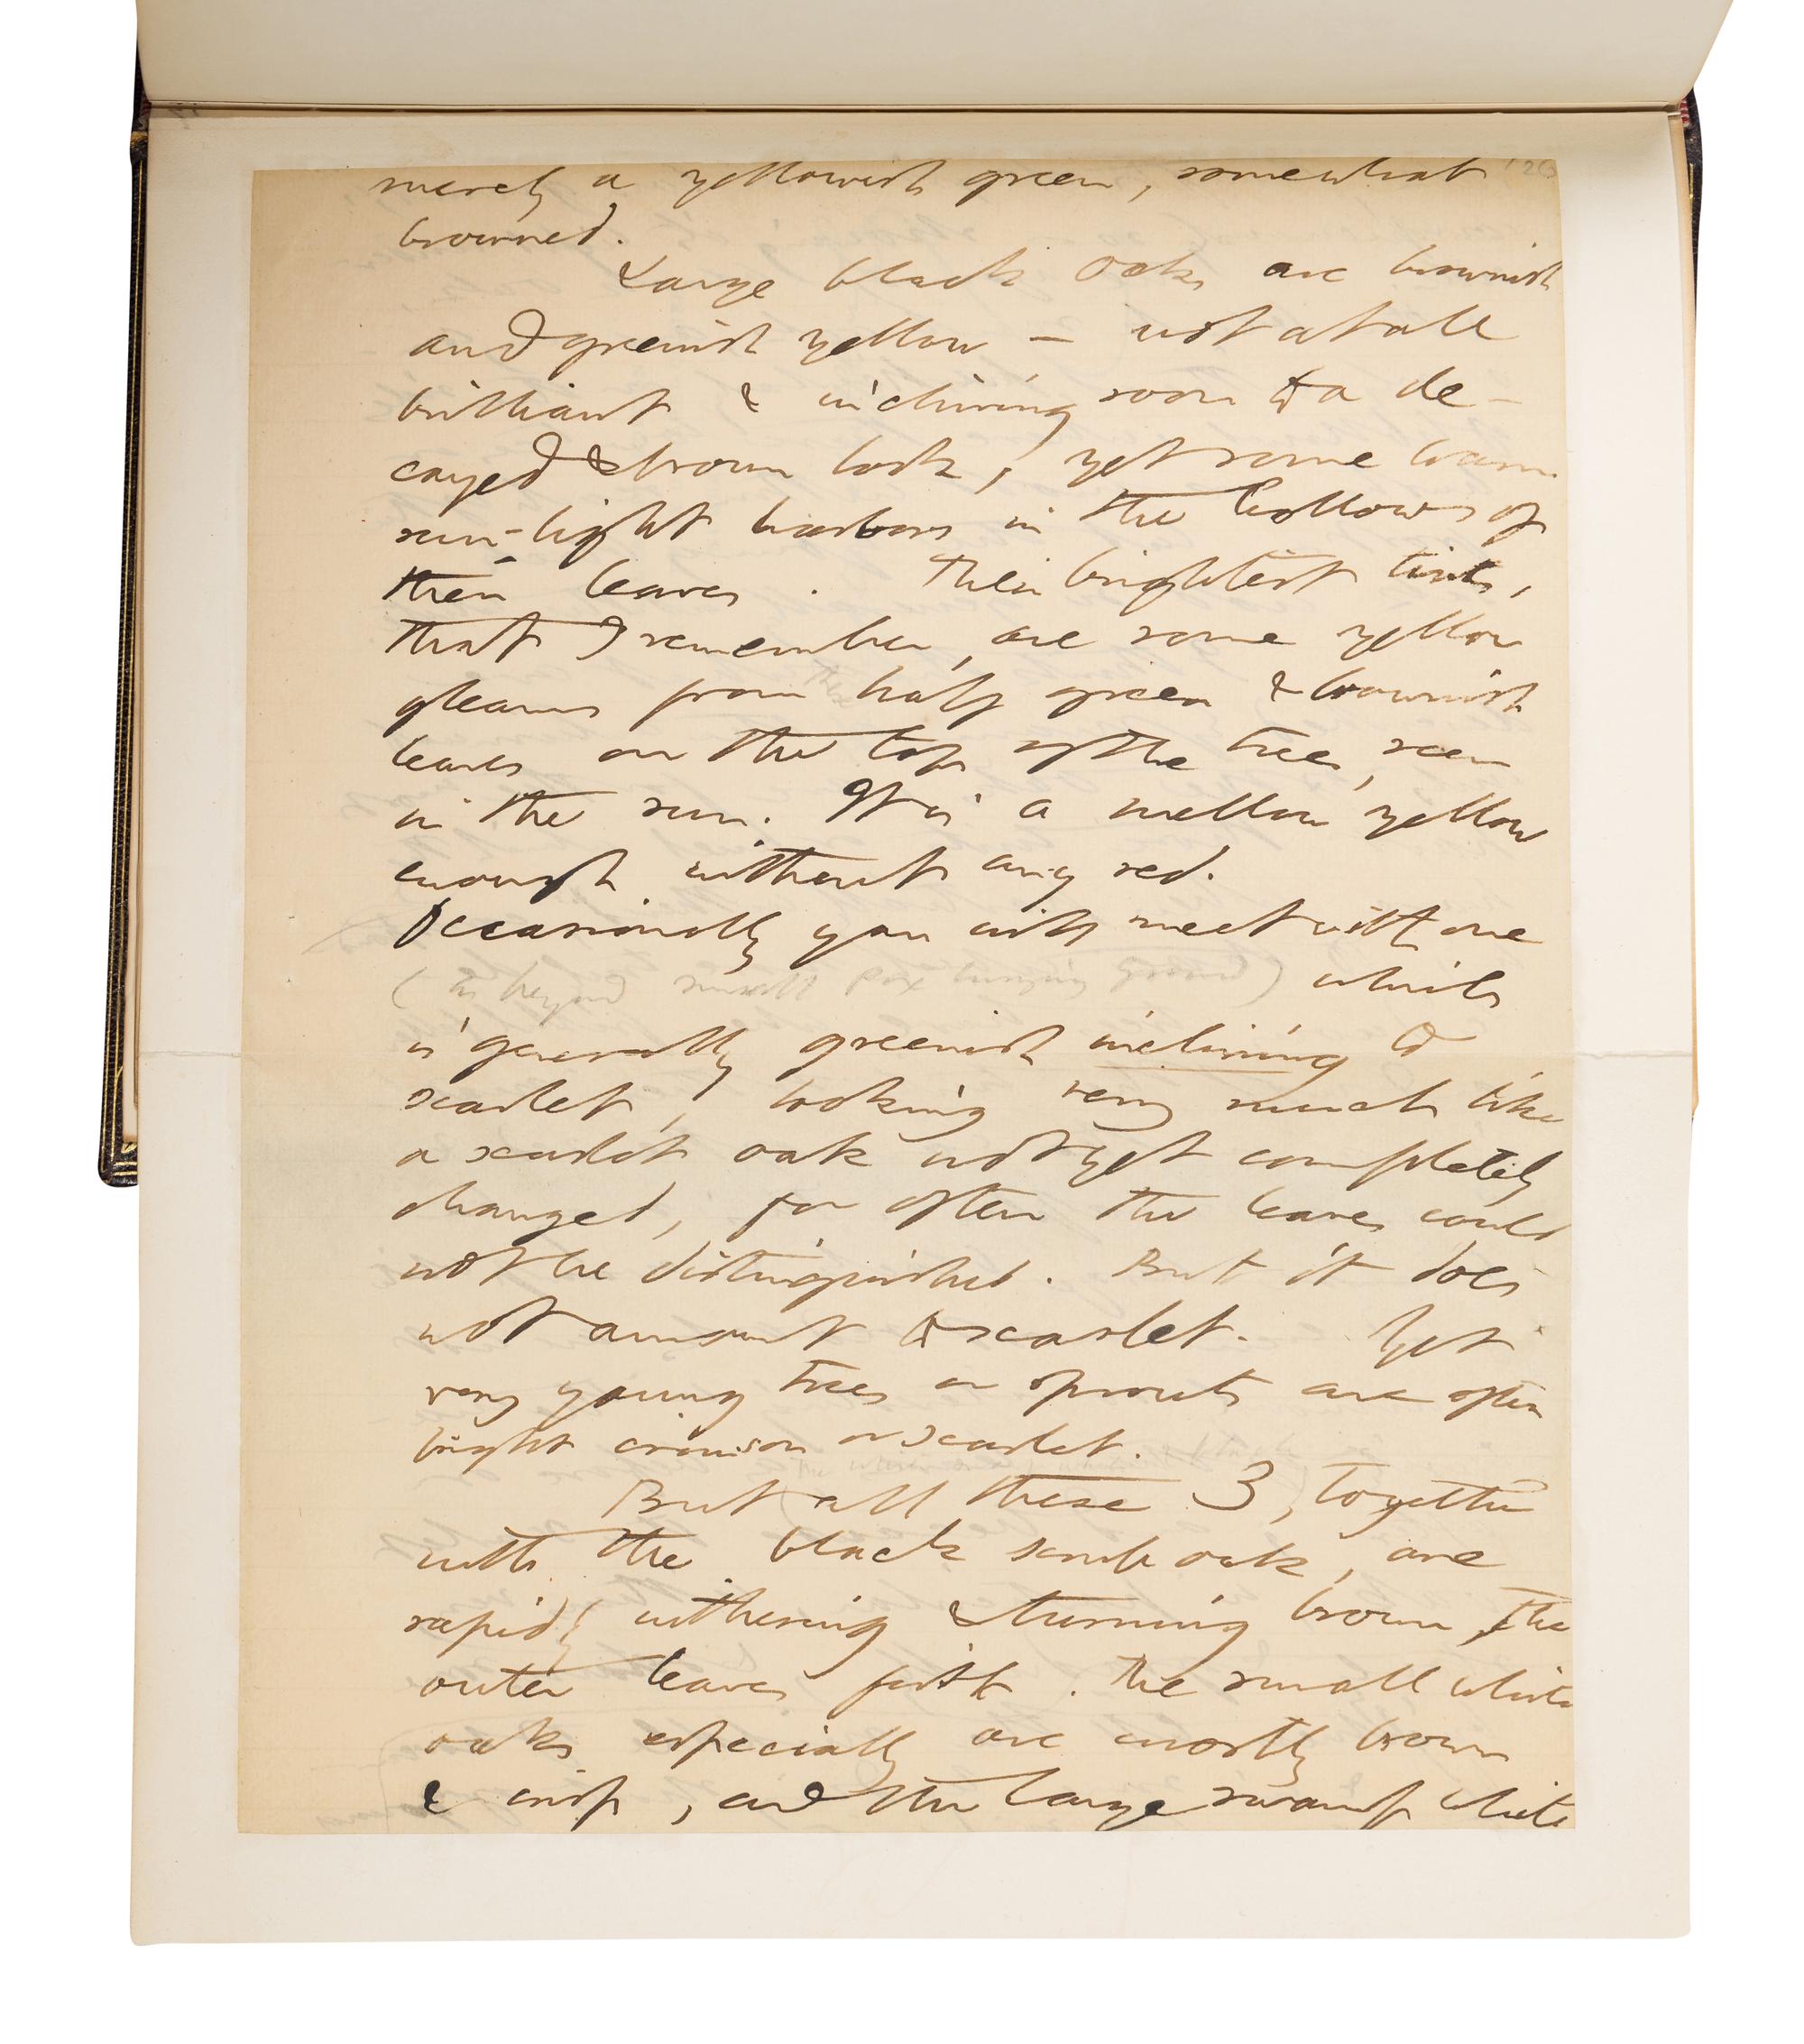 merely a yellowish green, somewhat
browned.
Large black oaks are brownish
and greenish yellow — not at all
brilliant & inclining soon to a de-
cayed & brown look, yet some warm
sun-light harbors in the hollows of
their leaves. Their brightest tints,
that I remember, are some yellow
gleams from half green & brownish
leaves on the tops of the trees, seen
in the sun. It is a mellow yellow
enough without any red.
Occasionally you will meet with one
(as beyond small pox burying ground) which
is generally greenish inclining to
scarlet, looking very much like
a scarlet oak not yet completely
changed, for often the leaves could
not be distinguished. But it does
not amount to scarlet. Yet
very young trees or sprouts are often
bright crimson or scarlet.
But all these 3, together
with the black scrub oak, are
rapidly withering & turning brown, the
outer leaves first. The small white
oaks especially are mostly brown
& crisp, and the large swamp white